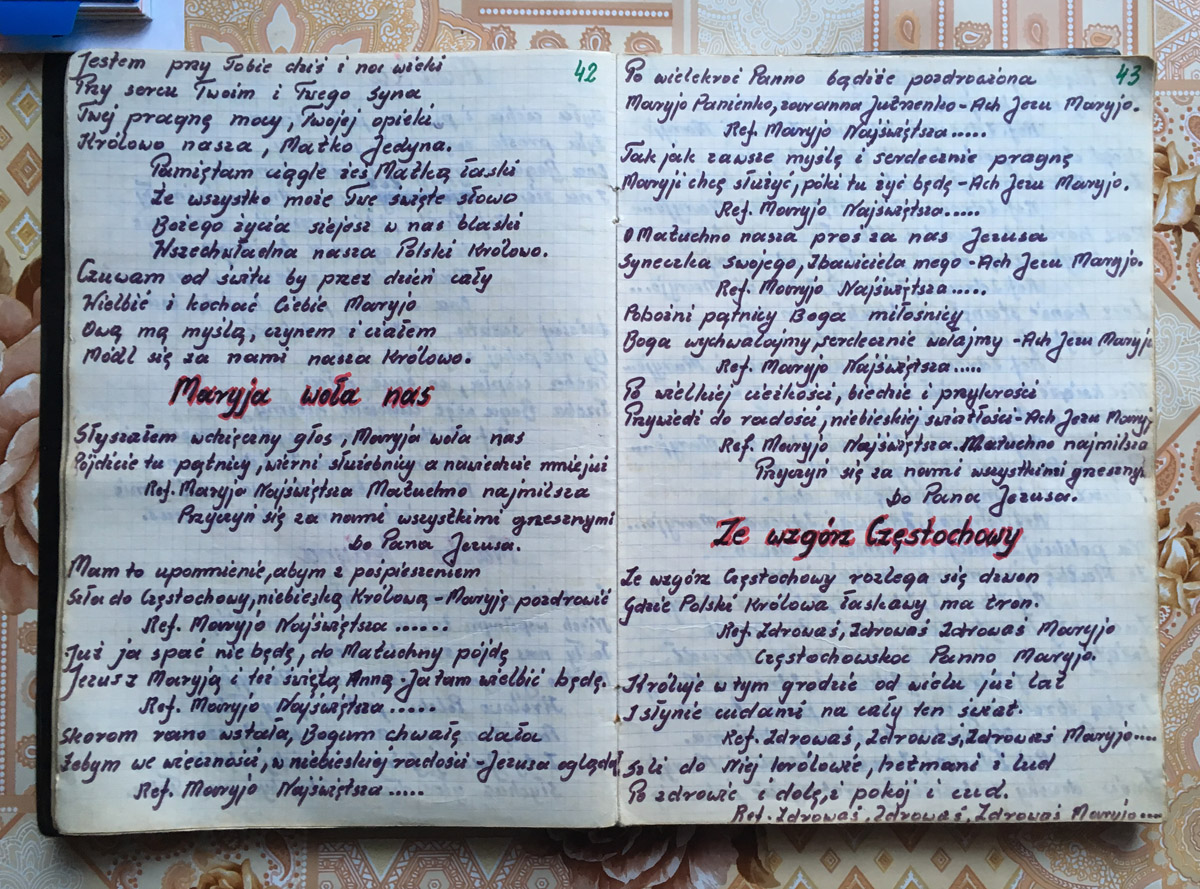 42
Jestem przy Tobie dziś i na wieki
Przy sercu Twoim i Twego Syna
Twej pragnę mocy, Twojej opieki
Królowo nasza, Matko Jedyna.
Pamiętam ciągle żeś Matką łaski
Że wszystko może Twe święte słowo
Bożego życia siejesz w nas blaski
Wszechwładna nasza Polski Królowo.
Czuwam od świtu by przez dzień cały
Wielbić i kochać Ciebie Maryjo
Ową mą myślą, czynem i ciałem
Módl się za nami nasza Królowo.
Maryja woła nas
Słyszałem wdzięczny głos, Maryja woła nas
Pójdźcie tu pątnicy, wierni służebnicy a nawiedźcie mnie już
Ref. Maryjo Najświętsza Matuchno najmilsza
Przyczyń się za nami wszystkimi grzesznymi
Do Pana Jezusa.
Mam to upomnienie, abym z pośpieszeniem
Szła do Częstochowy, niebieską Królową - Maryję pozdrowić
Ref. Maryjo Najświętsza ......
Już ja spać nie będę, do Matuchny pójdę
Jezus z Maryją i też świętą Anną - Ja tam wielbić będę.
Ref. Maryjo Najświętsza ......
Skorom rano wstała, Bogum chwałę dała
Żebym we wieczności, w niebieskiej radości - Jezusa oglądał
Ref. Maryjo Najświętsza .....
43
Po wielekroć Panno bądźże pozdrowiona
Maryjo Panienko, zaranna Jutrzenko - Ach Jezu Maryjo.
Ref. Maryjo Najświętsza .....
Tak jak zawsze myślę i serdecznie pragnę
Maryji chcę służyć, póki tu żyć będę - Ach Jezu Maryjo.
Ref. Maryjo Najświętsza.....
O Matuchno nasza proś za nas Jezusa
Syneczka swojego, Zbawiciela mego - Ach Jezu Maryjo.
Ref. Maryjo Najświętsza.....
Pobożni pątnicy Boga miłośnicy
Boga wychwalajmy, serdecznie wołajmy - Ach Jezu Maryji
Ref. Maryjo Najświętsza.....
Po wielkiej ciężkości, biedzie i przykrości
Przywiedź do radości, niebieskiej światłości - Ach Jezu Maryj
Ref. Maryjo Najświętsza. Matuchno najmilsza
Przyczyń się za nami wszystkimi grzeszny
Do Pana Jezusa.
Ze wzgórz Częstochowy
Ze wzgórz Częstochowy rozlega się dzwon
Gdzie Polski Królowa łaskawy ma tron.
Ref. Zdrowaś, Zdrowaś Zdrowaś Maryjo
Częstochowska Panno Maryjo.
Króluje w tym grodzie od wielu już lat
I słynie cudami na cały ten świat.
Ref. Zdrowaś, Zdrowaś, Zdrowaś Maryjo....
Szli do Niej królowie, hetmani i lud
Po zdrowie i dolę, i pokój i cud.
Ref. Zdrowaś, Zdrowaś, Zdrowaś Maryjo....